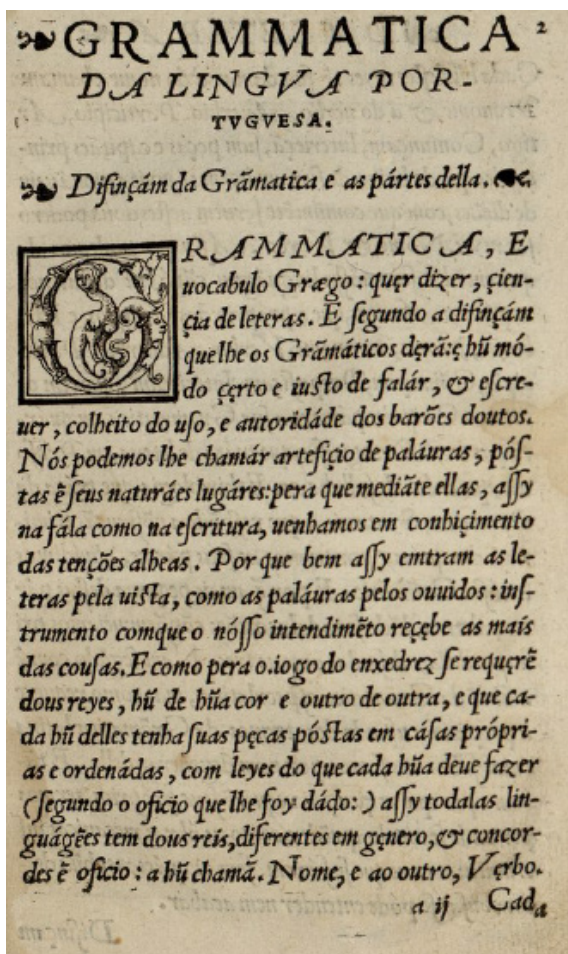 GRAMMATICA 2
DA LINGVA POR-
TVGVESA.
Difinçám da Grãmatica e as pártes della.
GRAMMATICA, E
uocabulo Græego : quęr dizer, çien-
çia de leteras. E ſegundo a difinçám
que lhe os Grãmáticos dęrã:ę hũ mó-
do çęrto e iuſto de falár, & eſcre-
uer, colheito do uſo, e autoridáde dos barões doutos.
Nós podemos lhe chamár artefiçio de paláuras, póſ-
tas ẽ ſeus naturáes lugáres:pera que mediãte ellas, aſſy
na fála como na eſcritura, uenhamos em conhiçimento
das tenções alheas. Por que bem aſſy emtram as le-
teras pela uiſta, como as paláuras pelos ouuidos : inſ-
trumento comque o nóſſo intendimẽto reçębe as mais
das couſas. E como pera o.iogo do enxedrez ſe requęrẽ
dous reyes, hũ de hũa cor e outro de outra, e que ca-
da hũ delles tenha ſuas pęcas póſtas em cáſas própri-
as e ordenádas, com leyes do que cada hũa deue fazer
(ſegundo o oficio que lhe foy dádo: ) aſſy todalas lin-
guágẽes tem dous reis,diferentes em gęnero,& concor-
des ẽ oficio : a hũ chamã. Nome, e ao outro, Vęrbo.
a ij Cada